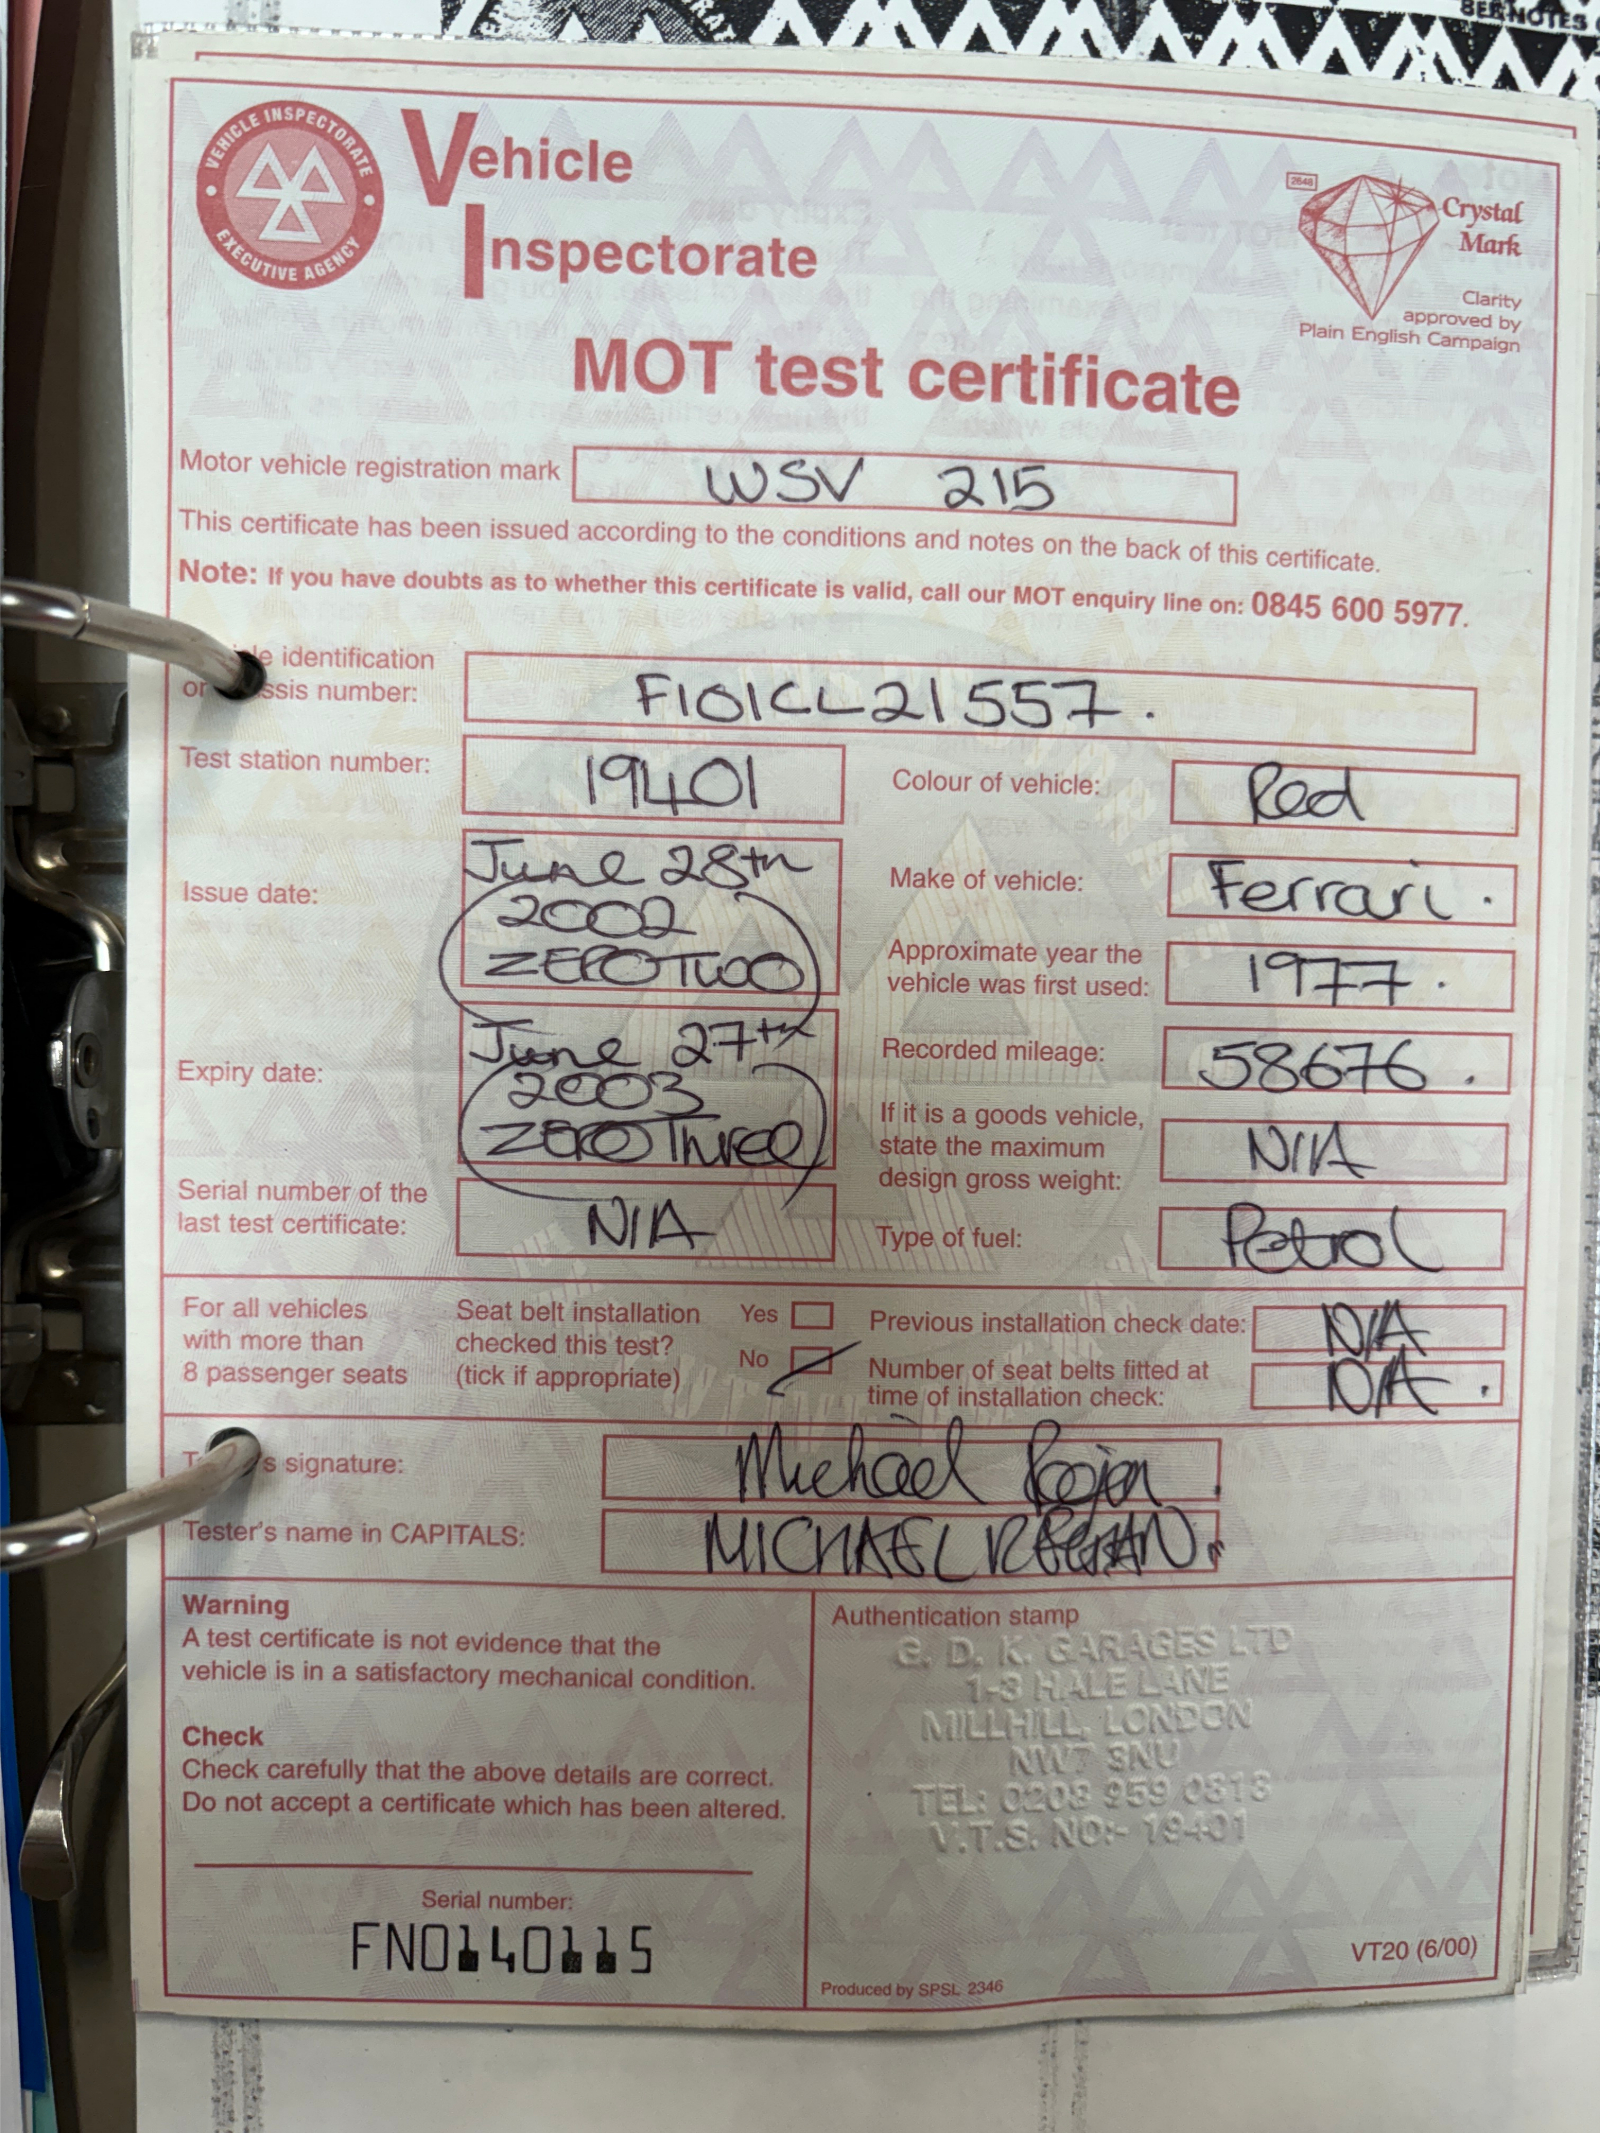 SEE NOTES
VEHICLE INSPECTORATE
EXECUTIVE AGENCY
Vehicle
Inspectorate
2646
Crystal
Mark
Clarity
approved by
Plain English Campaign
MOT test certificate
Motor vehicle registration mark WSV 215
This certificate has been issued according to the conditions and notes on the back of this certificate.
Note: If you have doubts as to whether this certificate is valid, call our MOT enquiry line on: 0845 600 5977.
identification
or chassis number: F101CL21557.
Test station number: 19401
Colour of vehicle: Red
Issue date: June 28th
2002
ZERO TWO
Make of vehicle: Ferrari.
Approximate year the
vehicle was first used: 1977.
Expiry date: June 27th
2003
ZERO Three
Recorded mileage: 58676.
If it is a goods vehicle,
state the maximum
design gross weight: N/A
Serial number of the
last test certificate: N/A
Type of fuel: Petrol
For all vehicles
with more than
8 passenger seats
Seat belt installation
checked this test?
(tick if appropriate)
Yes
No
Previous installation check date: N/A
Number of seat belts fitted at
time of installation check: N/A.
signature: Michael
Tester's name in CAPITALS: MICHAEL
Warning
A test certificate is not evidence that the
vehicle is in a satisfactory mechanical condition.
Check
Check carefully that the above details are correct.
Do not accept a certificate which has been altered.
Serial number:
FN0140115
Authentication stamp
G. D. K. GARAGES LTD
1-3 HALE LANE
MILLHILL, LONDON
NW7 3NU
TEL: 0208 959 0313
V.T.S. NO:- 19401
VT20 (6/00)
Produced by SPSL 2346